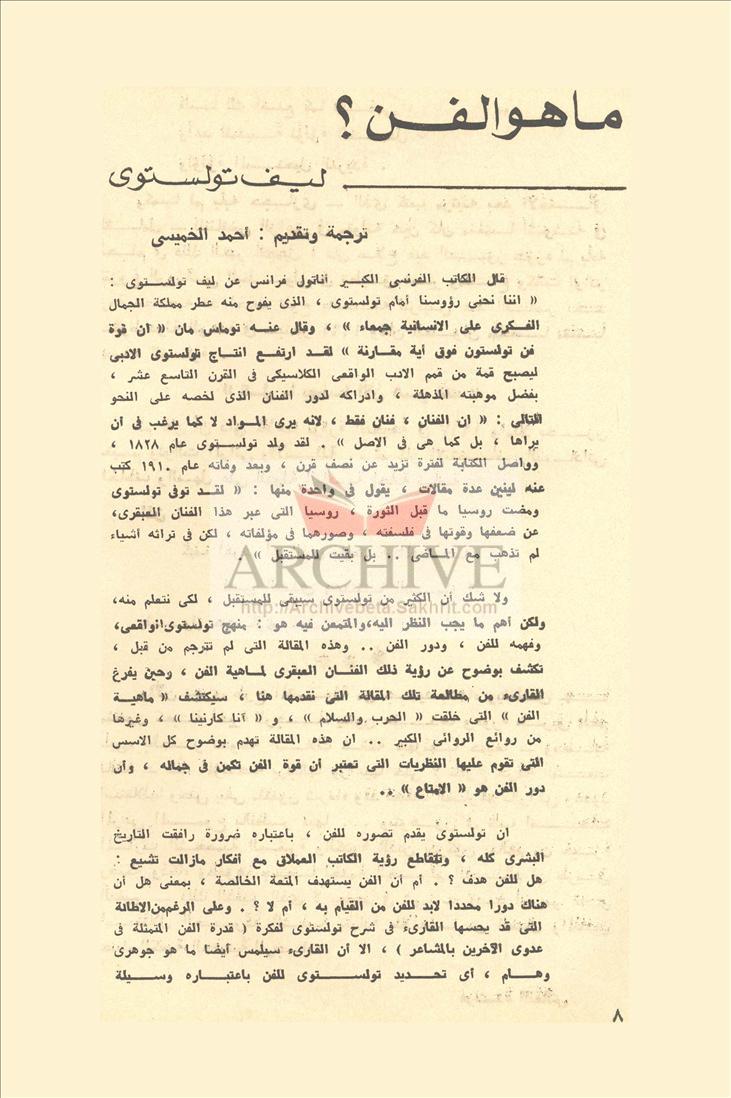 ما هو الفن ؟
ليف تولستوى
ترجمة وتقديم : أحمد الخميسى
قال الكاتب الفرنسى الكبير أناتول فرانس عن ليف تولستوى :
« اننا نحنى رؤوسنا أمام تولستوى ، الذى يفوح منه عطر مملكة الجمال
الفكرى على الانسانية جمعاء » ، وقال عنه توماس مان « ان قوة
فن تولستون فوق أية مقارنة » لقد ارتفع انتاج تولستوى الادبى
ليصبح قمة من قمم الادب الواقعى الكلاسيكى فى القرن التاسع عشر ،
بفضل موهبته المذهلة ، وادراكه لدور الفنان الذى لخصه على النحو
التالى : « ان الفنان ، فنان فقط ، لانه يرى المواد لا كما يرغب فى أن
يراها ، بل كما هى فى الاصل » . لقد ولد تولستوى عام ١٨٢٨ ،
وواصل الكتابة لفترة تزيد عن نصف قرن ، وبعد وفاته عام ١٩١٠ كتب
عنه لينين عدة مقالات ، يقول فى واحدة منها : « لقد توفى تولستوى
ومضت روسيا ما قبل الثورة ، روسيا التى عبر هذا الفنان العبقرى،
عن ضعفها وقوتها فى فلسفته ، وصورهما فى مؤلفاته ، لكن فى تراثه أشياء
لم تذهب مع الماضى .. بل بقيت للمستقبل » .
ARCHIVE
http://Archivebeta.Sakhrit.com
ولا شك أن الكثير من تولستوى سيبقى للمستقبل ، لكى نتعلم منه،
ولكن أهم ما يجب النظر اليه،والتمعن فيه هو : منهج تولستوى الواقعى،
وفهمه للفن ، ودور الفن .. وهذه المقالة التى لم تترجم من قبل ،
تكشف بوضوح عن رؤية ذلك الفنان العبقرى لماهية الفن ، وحين يفرغ
القارىء من مطالعة تلك المقالة التى نقدمها هنا ، سيكتشف « ماهية
الفن » التى خلقت « الحرب والسلام » ، و « آنا كارنينا » ، وغيرها
من روائع الروائى الكبير .. ان هذه المقالة تهدم بوضوح كل الاسس
التى تقوم عليها النظريات التى تعتبر أن قوة الفن تكمن فى جماله ، وأن
دور الفن هو « الامتاع » ..
ان تولستوى يقدم تصوره للفن ، باعتباره ضرورة رافقت التاريخ
البشرى كله ، وتتقاطع رؤية الكاتب العملاق مع أفكار مازالت تشيع :
هل للفن هدف ؟ . أم أن الفن يستهدف المتعة الخالصة ، بمعنى هل أن
هناك دورا محددا لابد للفن من القيام به ، أم لا ؟ . وعلى الرغم من الاطالة
التى قد يحسها القارىء فى شرح تولستوى لفكرة ( قدرة الفن المتمثلة فى
عدوى الآخرين بالمشاعر ) ، الا أن القارىء سيلمس أيضا ما هو جوهرى
وهام ، أى تحديد تولستوى للفن باعتباره وسيلة
٨